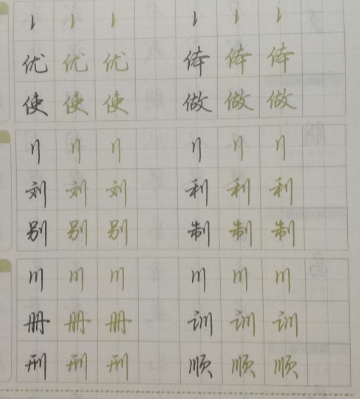 丨 丨 丨 丨 丨 丨
优 优 优 体 体 体
使 使 使 做 做 做
刂 刂 刂 刂 刂 刂
刘 刘 刘 利 利 利
别 别 别 制 制 制
川 川 川 川 川 川
册 册 册 训 训 训
刑 刑 刑 顺 顺 顺